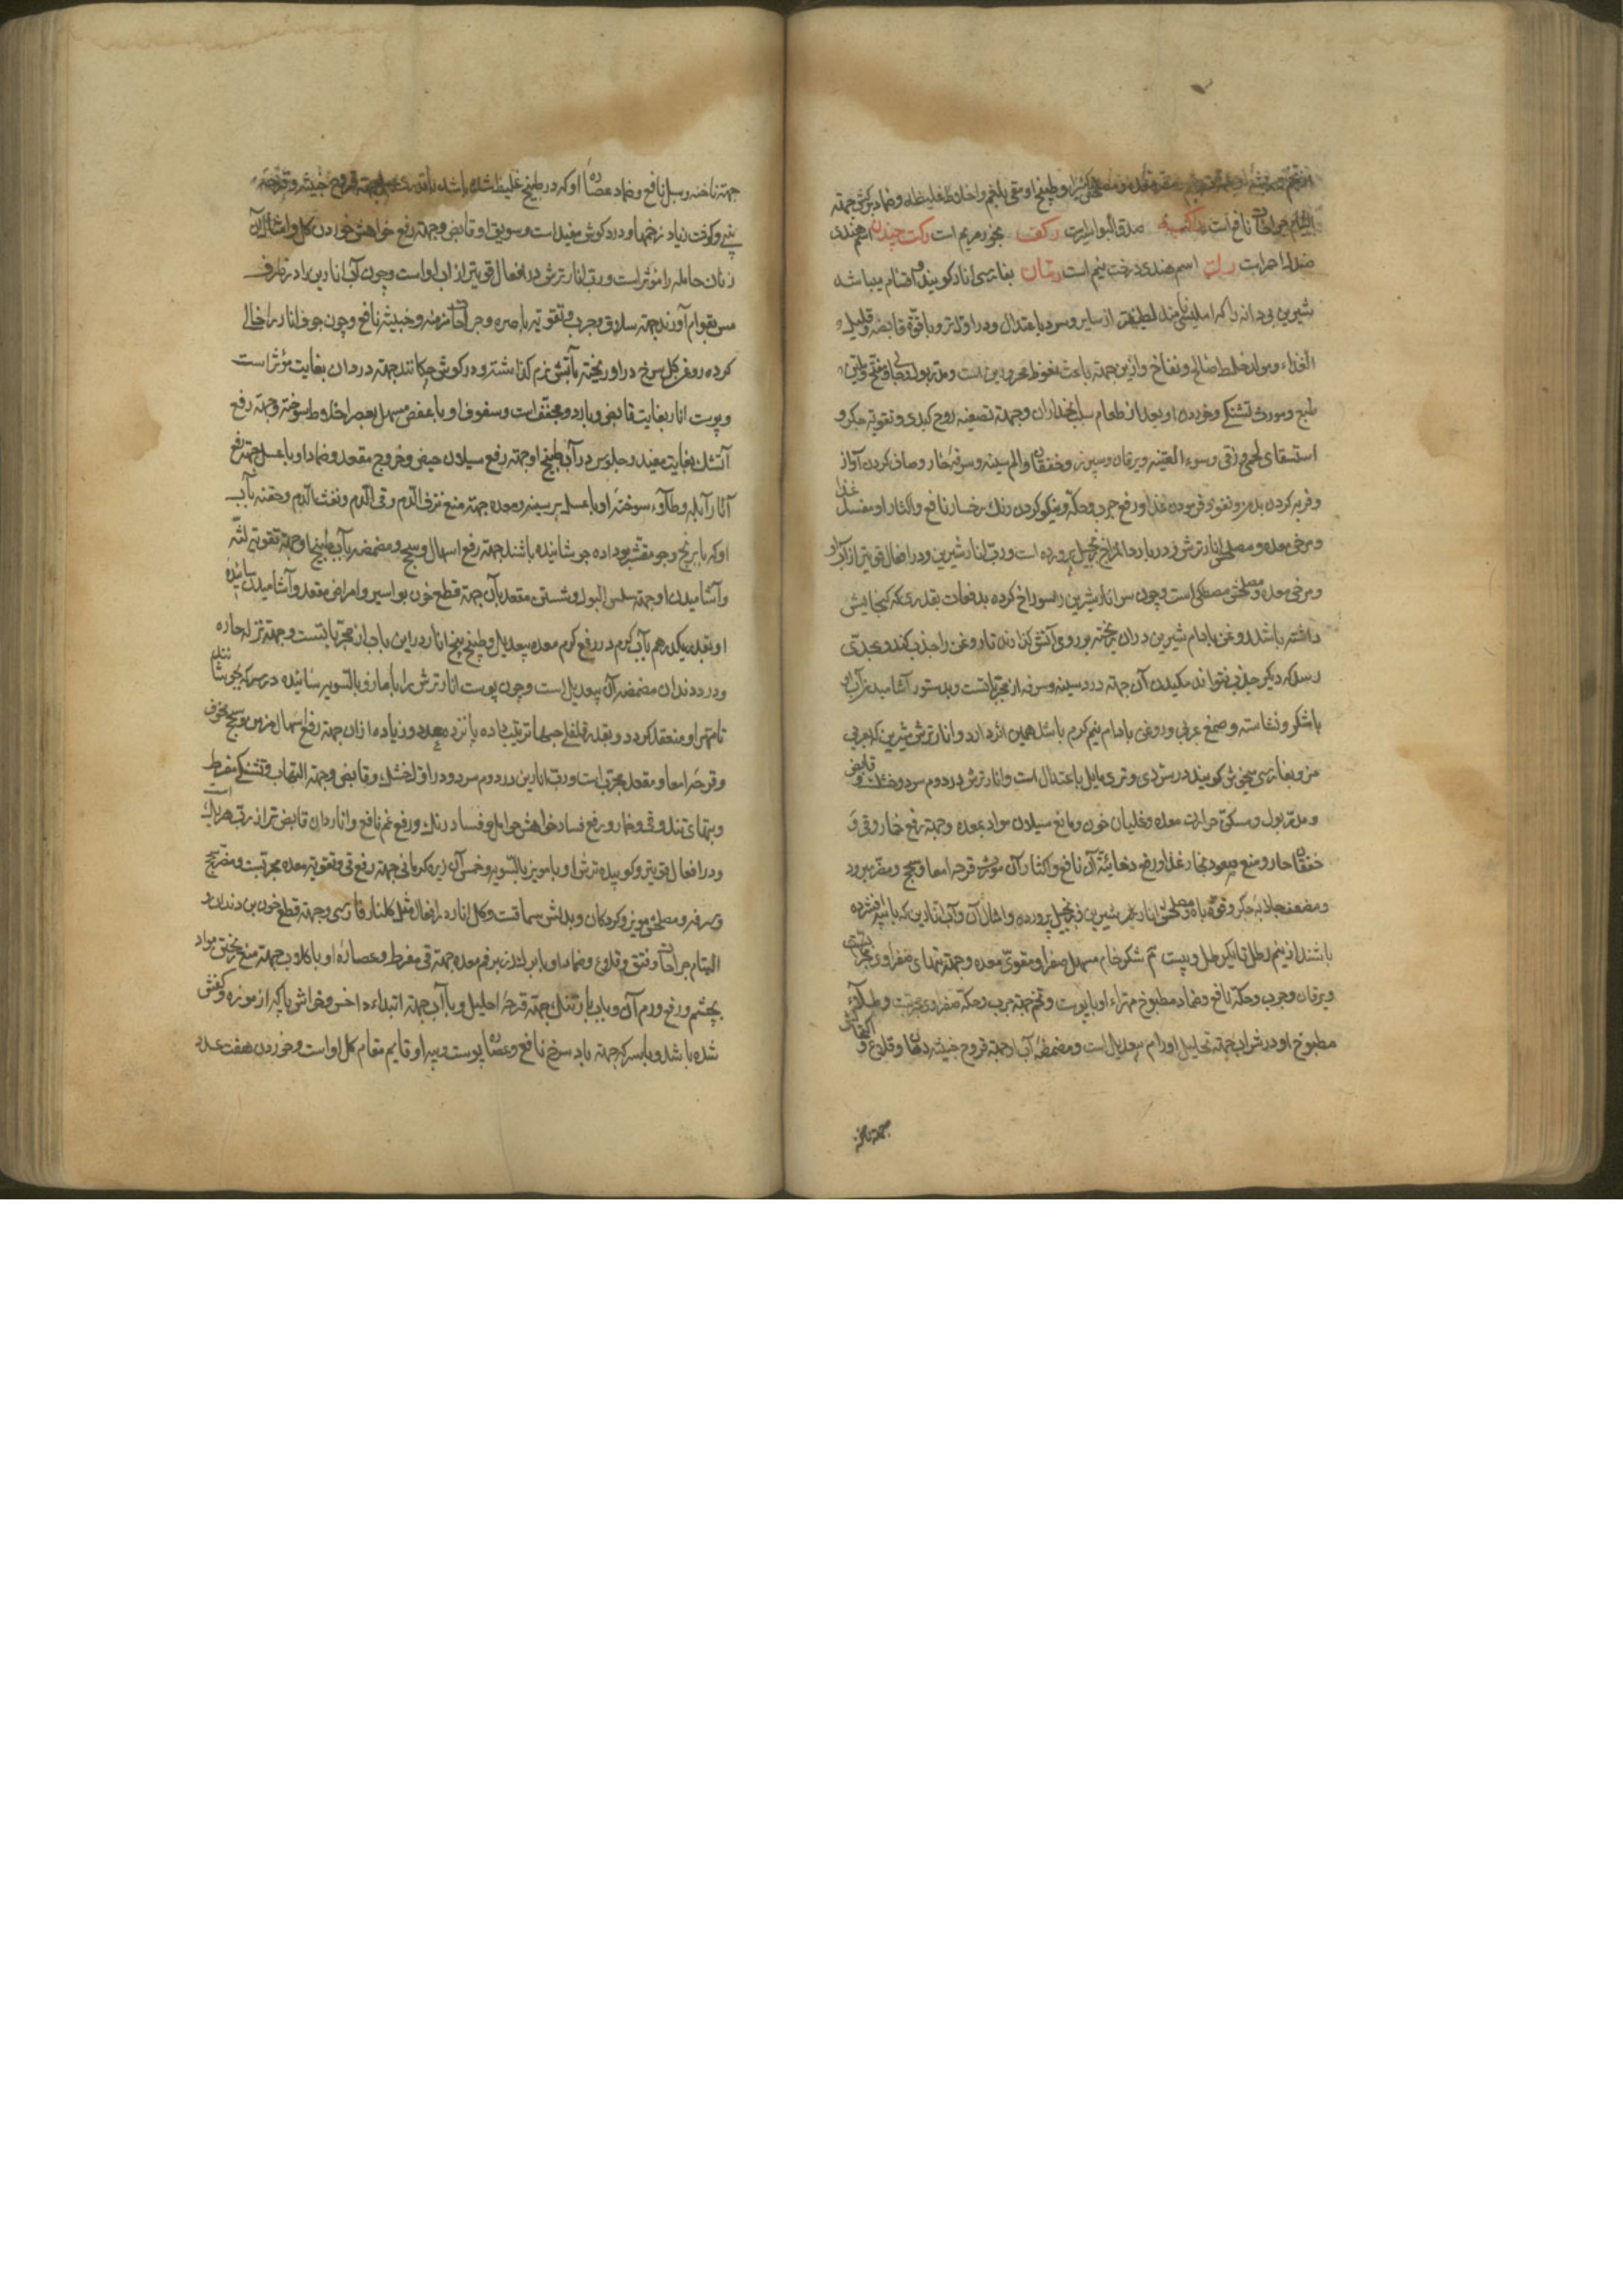 التیام جراحات نافع است راکشه صدقالبواسیرت رکف بخور مریم است رکت چندن اسم هندی
صندل احمرست رب اسم هندی درخت نیم است رمان بفارسی انار کویند و اقسام میباشد
شیرین بی دانه را که املیسی نامند لطیفتر از سایر و سرد باعتدال و در اول تر و با قوة قابضه و قلیل
الغذاء و مولد خلط صالح و نفاخ و ازین جهته باعث نغوظ محرورین است و مدر بول و جالی و مفتح و ملین
طبع و مورث تشنکی و خوردن او بعد از طعام سبب انحدار ان و جهته تصفیه روح کبدی و تقویة جکر و
استسقای لحمی و زقی و سوء القنیه و یرقان و سپرز و خفقان و الم سینه و سرفه حار و صاف کردن آواز
و فربه کردن بدن و نفوذ فرمودن غذا و رفع جرب و حکه و نیکو کردن رنک رخسار نافع و اکثار او مفسد غذا
و مرخی معده و مصلحش انار ترش و در بارد المزاج زنجبیل پرورده است و رب انار شیرین در افعال قویتر از آب او
و مرخی معده و مصلحش مصطکی است و چون سر انار شیرین را سوراخ کرده بدفعات بقدری که کنجایش
داشته باشد روغن بادام شیرین در ان ریخته بر روی آتش کذارند تا روغن را جذب کند و بحدی
رسد که دیکر جذب نتواند مکیدن آن جهته درد سینه و سرفه از مجرباتست و بدستور آشامیدن آب ان
با شکر و نشاسته و صمغ عربی و روغن بادام نیم کرم باشد همین اثر دارد و انار ترش شیرین که بعربی
مز و بفارسی میخوش کویند در سردی و تری مایل باعتدال است و انار ترش در دوم سرد و خشک و قابض
و مدر بول و مسکن حرارت معده و غلیان خون و مانع سیلان مواد بمعده و جهته رفع خمار و قی و
خفقان حار و منع صعود بخار غذا و رفع دخانیة آن نافع و اکثار آن مورث قرحه امعا و سحج و مضر مبرود
و مضعف جاذبه جکر و قوة باه و مصلحش انار شیرین و زنجبیل پرورده و امثال آن و آب انارین که با پیه افشرده
باشند از نیم رطل تا یکرطل و بیست م شکر خام مسهل صفرا و مقوی معده و جهته تبهای صفراوی مجربست
و یرقان و جرب و حکه نافع و ضماد مطبوخ مهرای او با پوست و تخم جهته جرب و حکه صفراوی مجربست و طلای
مطبوخ او در شراب جهته تحلیل اورام بیعدیل است و مضمضه آب او جهته قروح خبیثه دهان و قلاع و اکتحالش
جهته ناخنه
جهته ناخنه و سبل نافع و ضماد عصاره او که در طبخ غلیظ شده باشد با قدری عسل جهته قروح خبیثه و قرحه
بینی و کوفت زیاد زخمها و درد کوش مفید است و سویق او قابض و جهته رفع خواهش خوردن کل و امثال آن
زنان حامله را مؤثر است و رب انار ترش در افعال قویتر از آب او است و چون آب انارین را در ظرف
مس بقوام آورند جهته سلاق و جرب و تقویة باصره و جراحات مزمنه و خبیثه نافع و چون جوف انار را خالی
کرده روغن کل سرخ در او ریخته بآتش نرم کذاشته و در کوش چکانند جهته درد ان بغایت مؤثر است
و پوست انار بغایت قابض و بارد و مجفف است و سفوف او با عفص مسهل بعصر اخلاط سوخته و جهته رفع
آتشک بغایت مفید و جلوس در آب طبیخ او جهته رفع سیلان حیض و خروج مقعد و ضماد او با عسل جهته رفع
آثار آبله و طلاء سوخته او با عسل بر سینه و معده جهته منع نزف الدم و قی الدم و نفث الدم و حقنه بآب
او که با برنج و جو مقشر بوداده جوشانیده باشند جهته رفع اسهال و سحج و مضمضه بآب طبیخ او جهته تقویة لثه
و آشامیدن او جهته سلس البول و شستن مقعد بآن جهته قطع خون بواسیر و امراض مقعد و آشامیدن سائیده
او بقدر یکدرهم بآب کرم در رفع کرم معده بیعدیل و طبیخ بیخ انار در این باب از مجرباتست و جهته نزله حاره
و درد دندان مضمضه آن بیعدیل است و چون پوست انار ترش را با مازو بالسویه سائیده در سرکه بجوشانند
تا مهرا و منعقد کردد و بقدر فلفلی حبها ترتیب داده پانزده عدد و زیاده از ان جهته رفع اسهال مزمن و سحج مخوف
و قرحه امعا و مقعد مجرب است و رب انارین در دوم سرد و در اول خشک و قابض و جهته التهاب و تشنکی مفرط
و تبهای تند و قی و خمار و رفع فساد خواهش حوامل و فساد رنک و رفع غم نافع و اناردان قابض تر از رب هر یک است
و در افعال قویتر و کوبیده ترش او با مویز بالسویه و خمس آن زیره کرمانی جهته رفع قی و تقویة معده مجربست و مضر سحج
و سرفه و مصلحش مویز و کردکان و بدلش سماقست و کل انار در افعال مثل کلنار فارسی و جهته قطع خون بن دندان و
التیام جراحات و فتق و قلاع و ضماد او با برالنز بر فم معده جهته قی مفرط و عصاره او با کلاب جهته منع ریختن مواد
بچشم و رفع ورم آن و باب بارتنک جهته قرحه احلیل و با آب جهته ابتداء داخس و خراش پا که از موزه و کفش
شده باشد و با سرکه جهته باد سرخ نافع و عصاره پوست و پیه او قایم مقام کل او است و خوردن هفت عدد